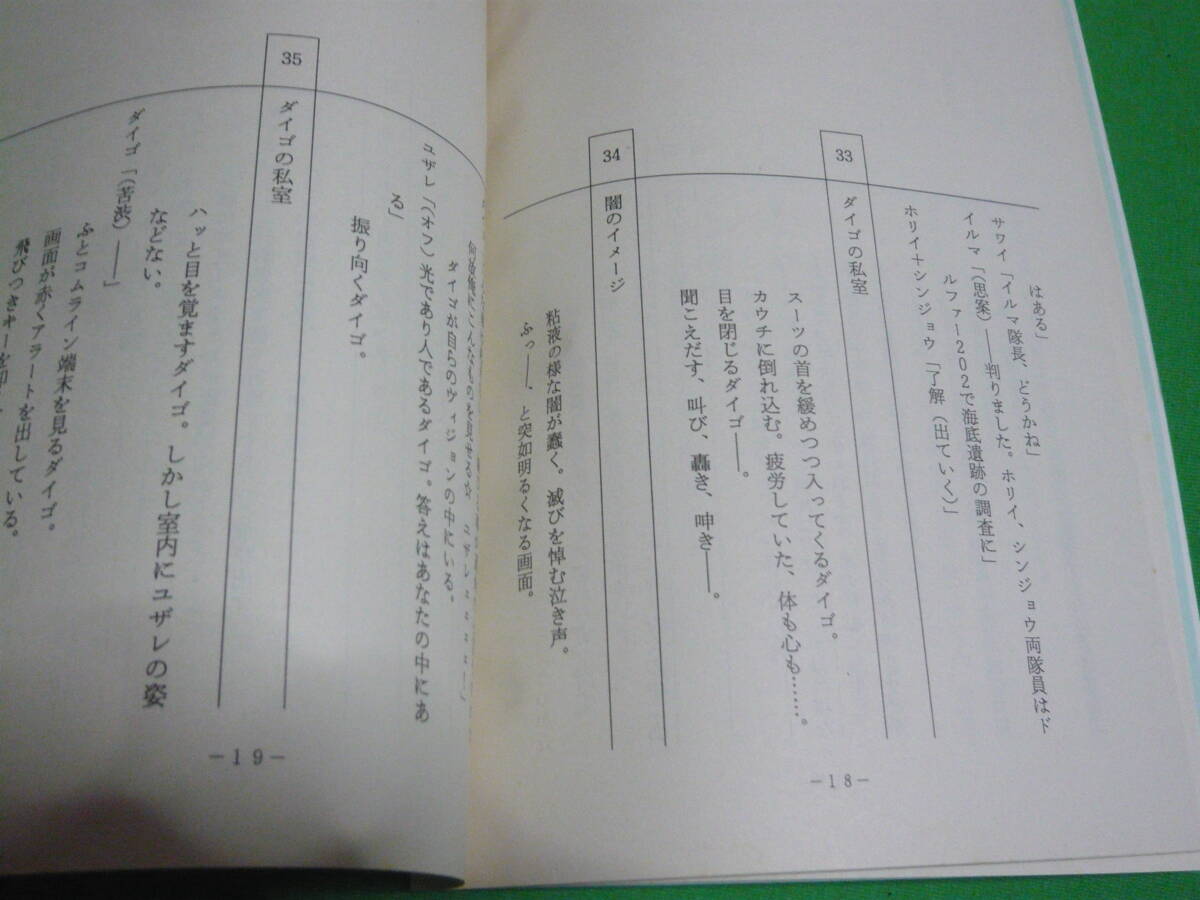 はある」
サワイ「イルマ隊長、どうかね」
イルマ「（思案）――判りました。ホリイ、シンジョウ両隊員はド
ルファー２０２で海底遺跡の調査に」
ホリイ＋シンジョウ「了解（出ていく）」
33
ダイゴの私室
スーツの首を緩めつつ入ってくるダイゴ。
カウチに倒れ込む。疲労していた、体も心も……。
目を閉じるダイゴ――。
聞こえだす、叫び、轟き、呻き――。
34
闇のイメージ
粘液の様な闇が蠢く。滅びを悼む泣き声。
ふっ――、と突如明るくなる画面。
－１８－
こんなものを見せる
ダイゴが自らのヴィジョンの中にいる。
ユザレ「（オフ）光であり人であるダイゴ。答えはあなたの中にあ
る」
振り向くダイゴ。
35
ダイゴの私室
ハッと目を覚ますダイゴ。しかし室内にユザレの姿
などない。
ダイゴ「（苦渋）――」
ふとコムライン端末を見るダイゴ。
画面が赤くアラートを出している。
飛びつきキーを
－１９－